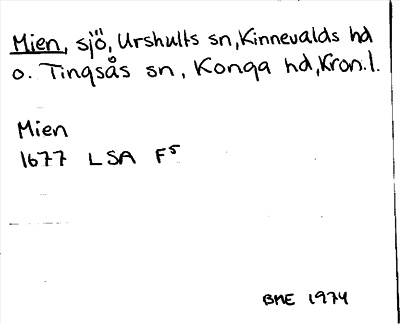 Mien, sjö, Urshults sn, Kinnevalds hd
o. Tingsås sn, Konga hd, Kron.l.
Mien
1677 LSA F5
BME 1974